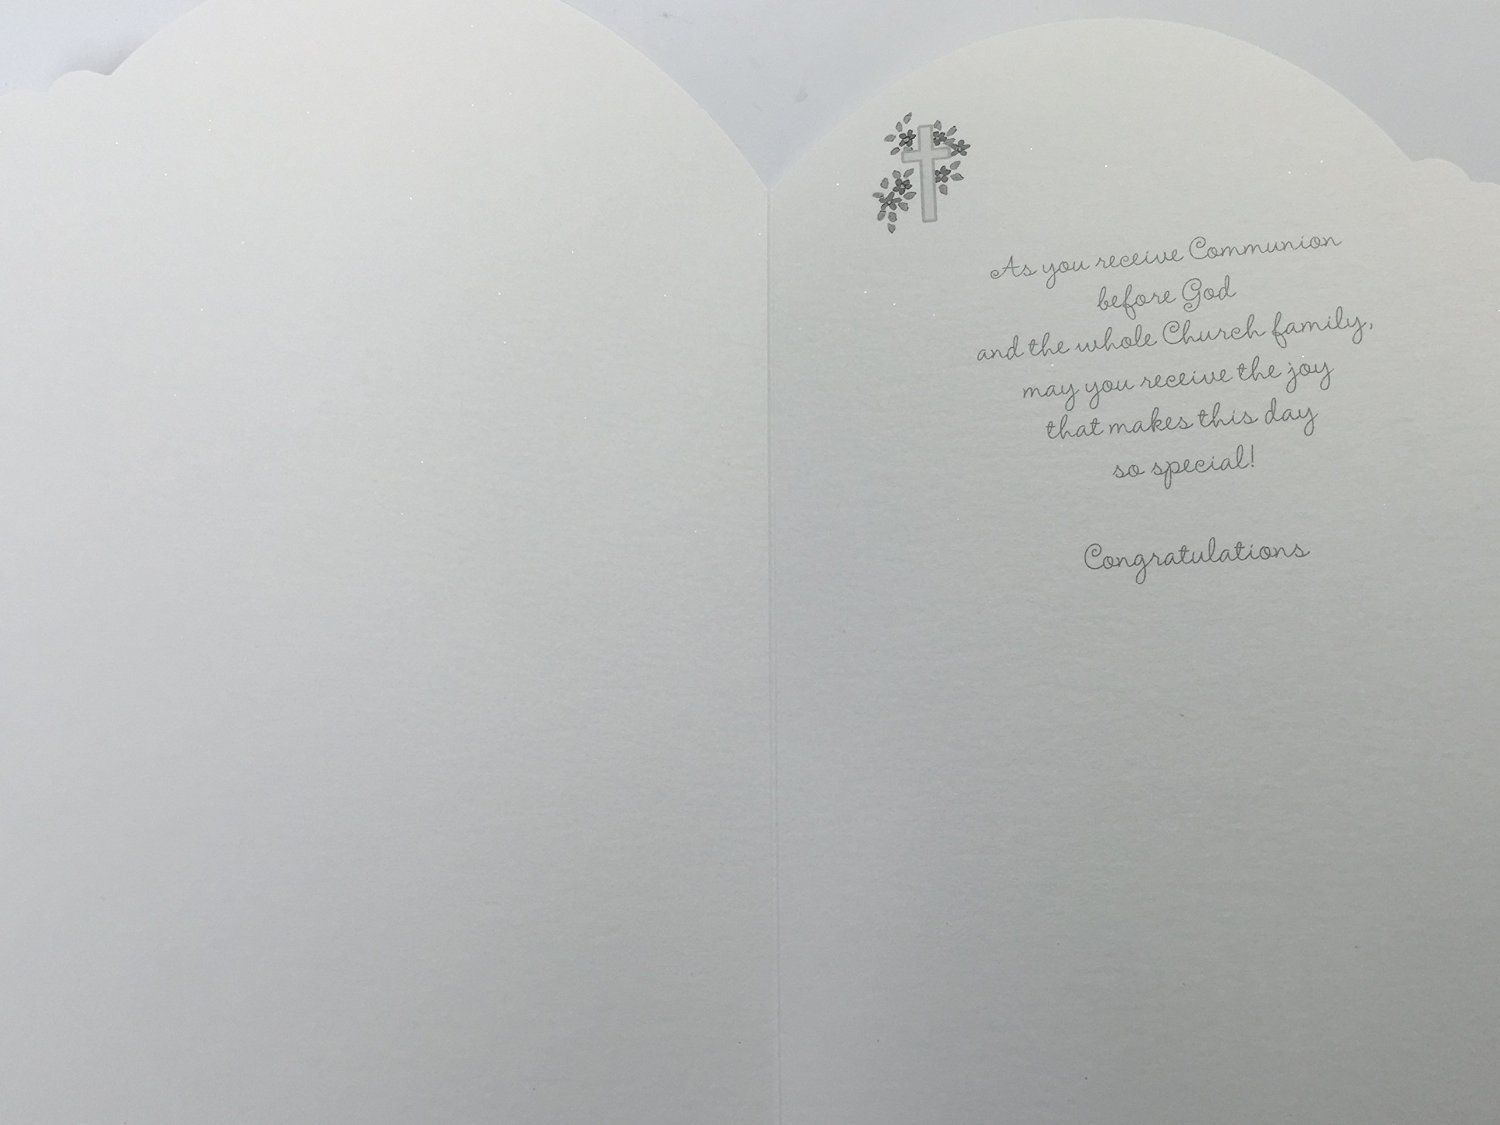 As you receive Communion
before God
and the whole Church family,
may you receive the joy
that makes this day
so special!
Congratulations